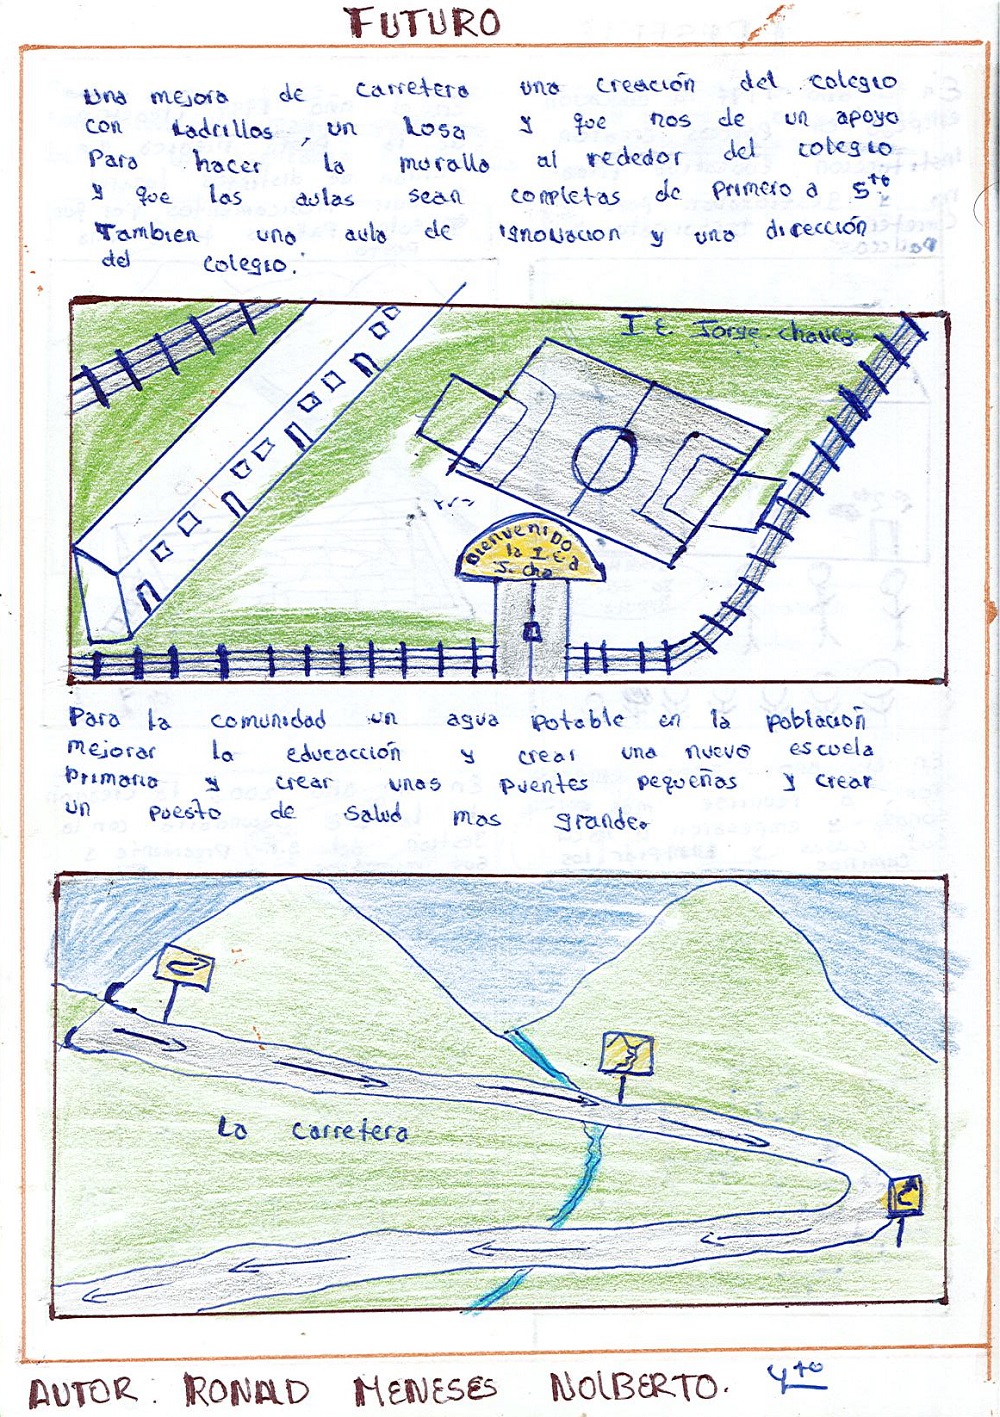 FUTURO
Una mejora de carretera una creación del colegio
con Ladrillos, un Losa y que nos de un apoyo
Para hacer la muralla al rededor del colegio
y que las aulas sean completas de primero a 5to
Tambien una aula de ignovacion y una dirección
del colegio.
I E Jorge chavez
Bienvenido
la I E a
J. cha
Para la comunidad un agua potable en la poblacion
mejorar la educacción y crear una nuevo escuela
Primaria y crear unas puentes pequeñas y crear
un puesto de salud mas grande.
La carretera
AUTOR: RONALD MENESES NOLBERTO. 4to